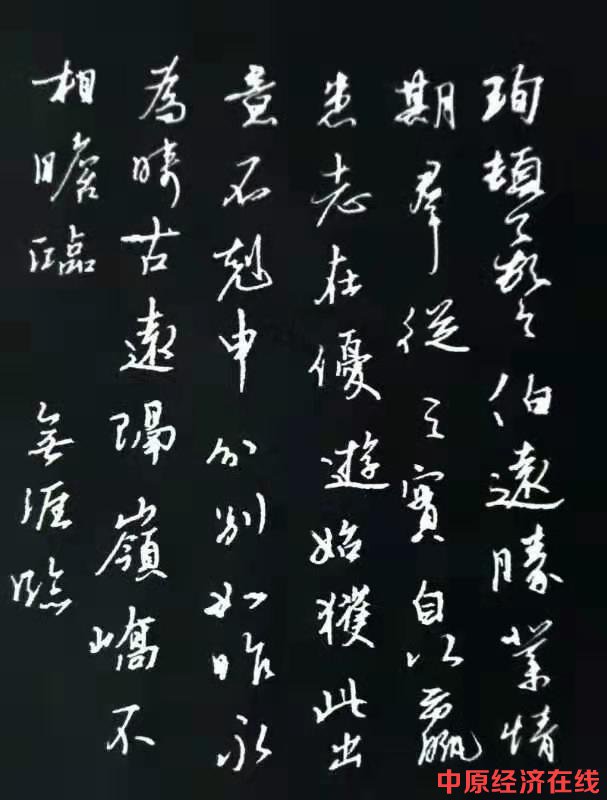 珣頓首頓首伯遠勝業情
期群從之寶自以羸
患志在優遊始獲此出
意不剋申分別如昨永
為疇古遠隔嶺嶠不
相瞻臨 無涯臨
中原经济在线